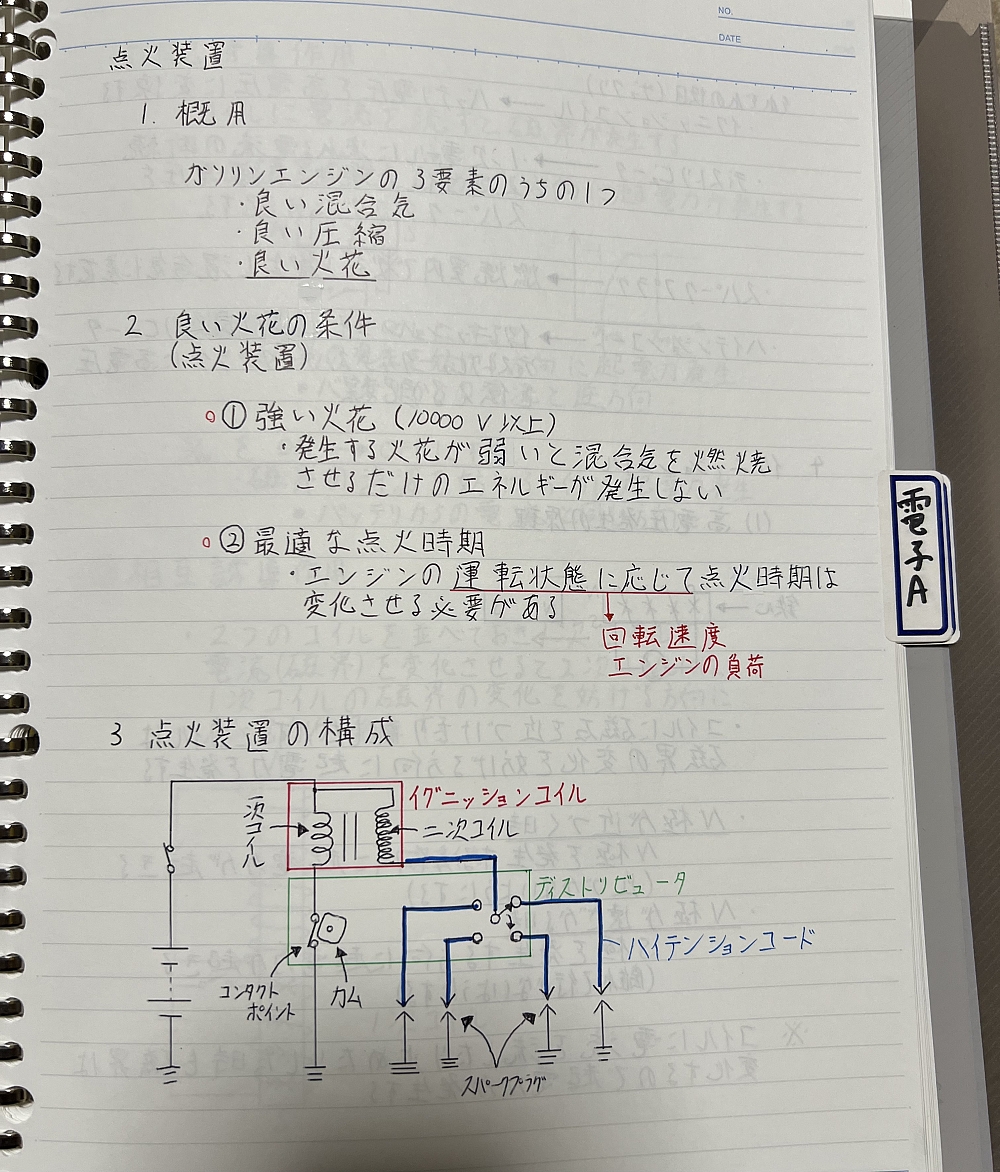 NO.
DATE
点火装置
1. 概用
ガソリンエンジンの3要素のうちの1つ
・良い混合気
・良い圧縮
・良い火花
2 良い火花の条件
(点火装置)
○① 強い火花 (10000V以上)
・発生する火花が弱いと混合気を燃焼
させるだけのエネルギーが発生しない
○② 最適な点火時期
・エンジンの運転状態に応じて点火時期は
変化させる必要がある
回転速度
エンジンの負荷
電子A
3 点火装置の構成
イグニッションコイル
一次コイル
二次コイル
ディストリビュータ
ハイテンションコード
コンタクト
ポイント
カム
スパークプラグ